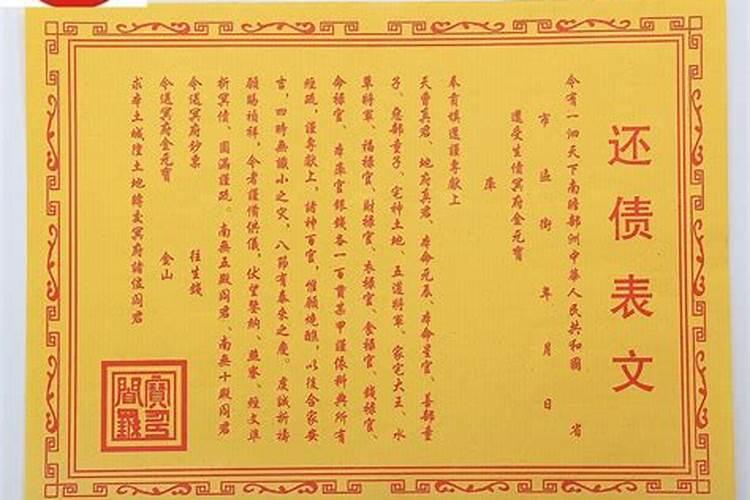 还债表文
今有一泗天下南瞻部洲中華人民共和國 省
市 區 街 年 月 日
還受生債冥府金元寶
庫
奉育填還謹專獻上
天曹真君、地府真君、本命元辰、本命星官、善部童
子、惡部童子、宅神土地、五道將軍、家宅大王、水
草將軍、福祿官、財祿官、衣祿官、食祿官、錢祿官、
命祿官、本庫官銀錢各一百貫某甲謹依科典所有
經疏，謹專獻上，諸神百官，惟願燒醮，以後合家安
言，四時無識小之灾，八節有泰來之慶。虔誠祈禱
願賜禎祥，今者謹備供儀，伏望鑒納、燕寥、經文準
折冥債、圆滿謹疏。南無五殿阎君、南無十殿阎君
今送冥府鈔票 往生錢
今送冥府金元寶 金山
求本土城隍土地轉交冥府諸位阎君